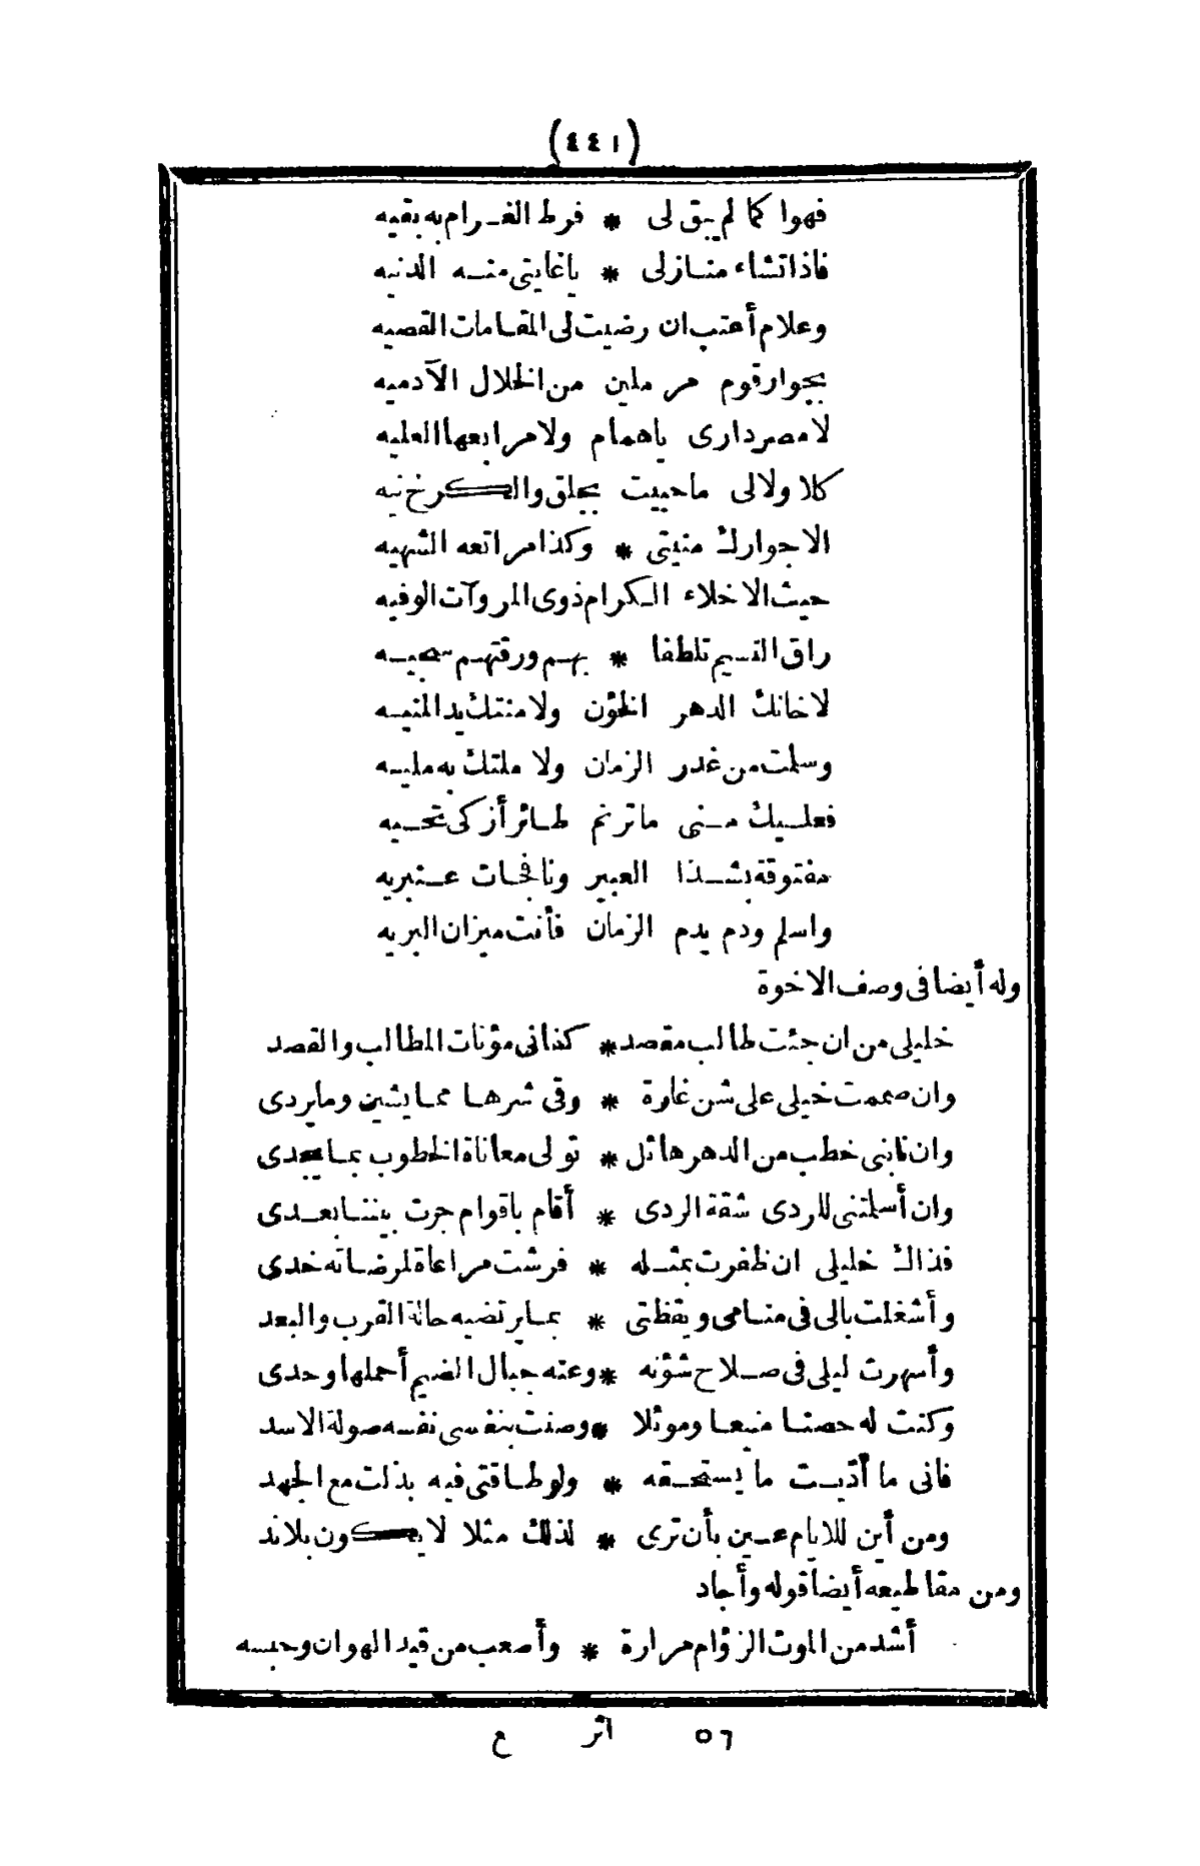 (٤٤١)
فهوا كما لم يبق لى * فرط الغـرام به بقيه
فاذا تشاء منـازلى * ياغايتى منـه الدنيه
وعلام أعتب ان رضيت لى المقامات القصيه
بجوار قوم مرملين من الخلال الآدميه
لا مصر دارى ياهمام ولا مرابعها العليه
كلا ولا لى ما حييت بجلق والكرخ نيه
الا جوارك منيتى * وكذا مراتعه الشهيه
حيث الاخلاء الكرام ذوى المروآت الوفيه
راق النسيم تلطفا * بهـم ورقتهـم سجيـه
لا خانك الدهر الخؤن ولا منتك يد المنيـه
وسلمت من غدر الزمان ولا ملتك به مليـه
فعلـيك مـنى ما ترنم طـائر أزكى تحـيه
مفتوقة بشـذا العبير ونافجات عـنبريه
واسلم ودم يدم الزمان فأنت ميزان البريه
وله أيضا فى وصف الاخوة
خليلى من ان جئت طالب مقصد * كفانى مؤنات المطالب والقصد
وان صممت خيلى على شن غارة * وقى شرهـا ممـا يشين وما يردى
وان نابنى خطب من الدهر هائل * تولى معاناة الخطوب بمـا يجدى
وان أسلمتنى للردى شقة الردى * أقام باقوام جرت بيننـا بعـدى
فذاك خليلى ان ظفرت بمثـله * فرشت مراعاة لمرضـاته خدى
وأشغلت بالى فى منـامى ويقظتى * بمـا يرتضيه حالة القرب والبعد
وأسهرت ليلى فى صـلاح شؤنه * وعنه جبال الضيم أحملها وحدى
وكنت له حصنـا منيعـا وموئلا * وصنت بنفسى نفسه صولة الاسد
فانى ما أدّيـت ما يستحـقه * ولو طـاقتى فيه بذلت مع الجهد
ومن أين للايام عـين بأن ترى * لذلك مثلا لا يـكون بلاند
ومن مقاطيعه أيضا قوله وأجاد
أشد من الموت الزؤام مرارة * وأصعب من قيد الهوان وحبسه
٥٦ اثر ع